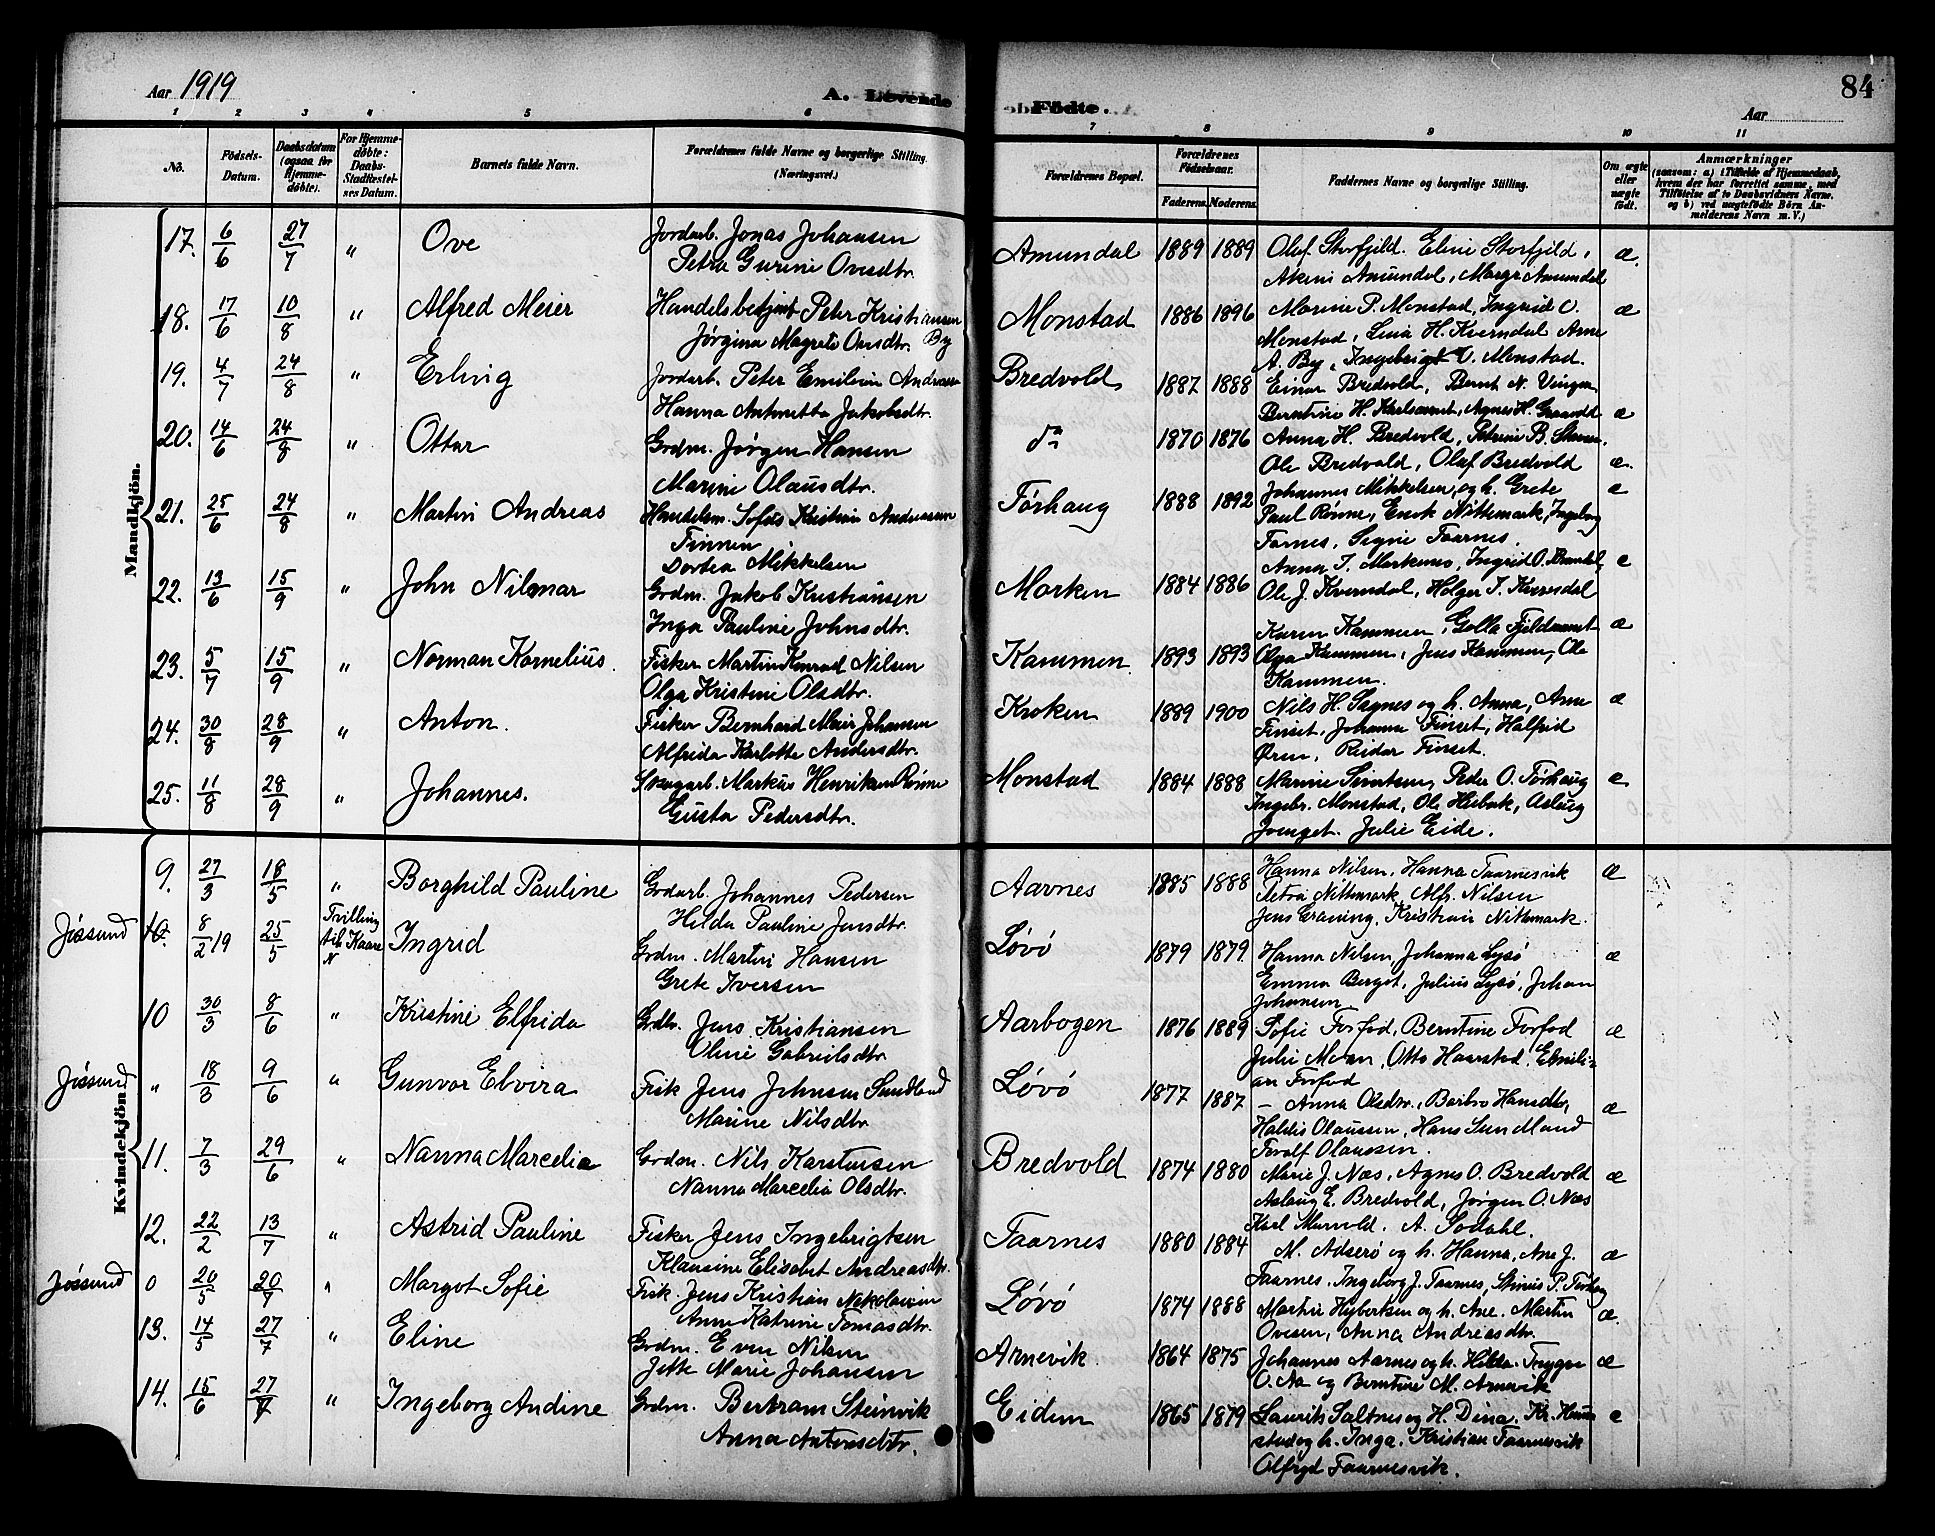 Aar 1919
A. Levende Födte.
84
Aar
1 2 3 4 5 6 7 8 9 10 11
No.
Födsels-Datum.
Daabsdatum (ogsaa for Hjemme-döbte).
For Hjemme-döbte: Daabs-Stadfæstel-ses Datum.
Barnets fulde Navn.
Forældrenes fulde Navne og borgerlige Stilling. (Næringsvei.)
Forældrenes Bopæl.
Forældrenes Födselsaar.
Faderens. Moderens.
Faddernes Navne og borgerlige Stilling.
Om ægte eller uægte födt.
Anmærkninger
(saasom: a) i Tilfælde af Hjemmedaab, hvem der har forrettet samme, med Tilföielse af to Daabsvidners Navne, og b) ved uægtefödte Börn An-melderens Navn m. V.)
Mandkjön.
17. 6/6 27/7 " Ove Jordarb. Jonas Johansen Amundal 1889 1889 Olaf Storfjeld. Eline Storfjeld, æ.
Petra Gurine Ovesdtr. Amundal, Amundal
18. 17/6 10/8 " Alfred Meier Handelsbetjent Peter Kristiansen By Monstad 1886 1896 Marine P. Monstad, Ingrid O. æ
Jørgina Magrete Ovesdtr. Monstad, Lina H. Kverndal Arne
A. By, Ingebrigt O. Monstad.
19. 4/7 24/8 " Erling Jordarb. Peter Emilius Andreassen Bredvold 1887 1888 Einar Bredvold, Bernt N.
Hanna Antonetta Jakobsdtr. Berntine H. Agnes H. æ
20. 14/6 24/8 " Ottar Grdm. Jørgen Hansen do 1870 1876 Anna H. Bredvold, Petrine B.
Marine Olausdtr. Ole Bredvold, Olaf Bredvold æ.
21. 25/6 24/8 " Martin Andreas Handelsm. Sofus Kristian Andreassen Tørhaug 1888 1892 Johannes Mikkelsen, og h. Grete æ
Finnen Paul Rønne, Enok Nittemark, Ingeborg
Dortea Mikkelsen Tarnes, Signe Taarnes.
22. 13/6 15/9 " John Nilmar Grdm. Jakob Kristiansen Morken 1884 1886 Anna J. Ingrid O. æ
Inga Pauline Johnsdtr. Ole J. Kverndal, Holger J.
23. 5/7 15/9 " Norman Kornelius. Fisker Martin Konrad Nilsen Kammen 1893 1893 Karen Kammen, Golla æ
Olga Kristine Olsdtr. Olga Kammen, Jens Kammen, Ole
Kammen.
24. 30/8 28/9 " Anton. Fisker Bernhard Meier Johansen Kroken 1889 1900 Nils H. Sagnes og h. Anna, Arne æ
Alfrida Karlotte Andersdtr. Finset, Johanna Finset, Halfrid
Øren, Reidar Finset.
25. 11/8 28/9 " Johannes. Skogarb. Markus Henriksen Rønne Monstad 1884 1888 Marine Peder O. Tørhaug æ
Gusta Pedersdtr. Ingebr. Monstad, Ole Aslaug
Julie Eide.
Kvindekjön.
9. 27/3 18/5 " Borghild Pauline Grdarb. Johannes Pedersen Aarnes 1885 1888 Hanna Nilsen, Hanna Taarnesvik æ
Hilda Pauline Jensdtr. Petra Nittemark Alfr. Nilsen
Jens Graning, Kristian Nittemark.
Jössund 10. 8/2 19 25/5 Tvilling til Kaare N Ingrid Grdm. Martin Hansen Løvö 1879 1879 Hanna Nilsen, Johanna Lysö æ
Grete Iversen Emma Berget, Julius Lysö, Johan
Johansen
10 30/3 8/6 " Kristine Elfrida Grdbr. Jens Kristiansen Aarbogen 1876 1889 Sofie Forfod, Berntine Forfod æ
Oline Gabrielsdtr Julie Moan, Otto Haarstad, Emili-
an Forfod
Jössund " 18/3 9/6 " Gunvor Elvira Fisk Jens Johnsen Sundland Løvö 1877 1887 – Anna Olsdtr., Barbro Hansdtr, æ
Marine Nilsdtr Haldis Olaussen, Hans Sundland
Toralf Olaussen.
11. 7/3 29/6 " Nanna Marcelia Grdm. Nils Karstensen Bredvold 1874 1880 Marie J. Næs, Agnes O. Bredvold æ
Nanna Marcelia Olsdtr. Aslaug E. Bredvold, Jørgen O. Næs
Karl A. Sodahl.
12. 22/2 13/7 " Astrid Pauline Fisker Jens Ingebrigtsen Taarnes 1880 1884 M. Adserø og h. Hanna, Ane J. æ
Klausine Elisabet Andreasdtr. Taarnes, Ingeborg J. Taarnes,
Jössund 0 20/5 20/7 " Margot Sofie Fisk. Jens Kristian Nikolaisen Løvö 1874 1888 Martin Hybertsen og h. Ane. Martin æ.
Anne Katrine Tomasdtr. Ovesen, Anna Andreasdtr.
13. 14/5 27/7 " Eline Grdm. Even Nilsen Arnevik. 1864 1875 Johannes Aarnes og h. Hilda. Trygve æ
Jette Marie Johansen O. Aa og Berntine M. Arnevik
14. 15/6 27/7 " Ingeborg Andine Grdm. Bertram Steinvik Eidem 1865 1879 Laurits Saltnes og H. Dina. Kr.
Anna Antonsdtr. og h. Inga. Kristian Taarnesvik
Taarnesvik.